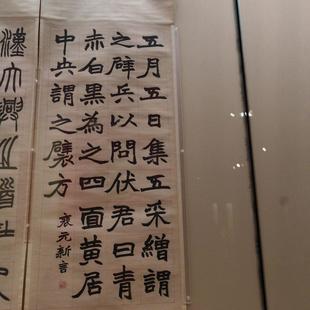 五月五日集五采繒謂
之辟兵以問伏君曰青
赤白黑為之四面黃居
中央謂之襞方
裵元新言